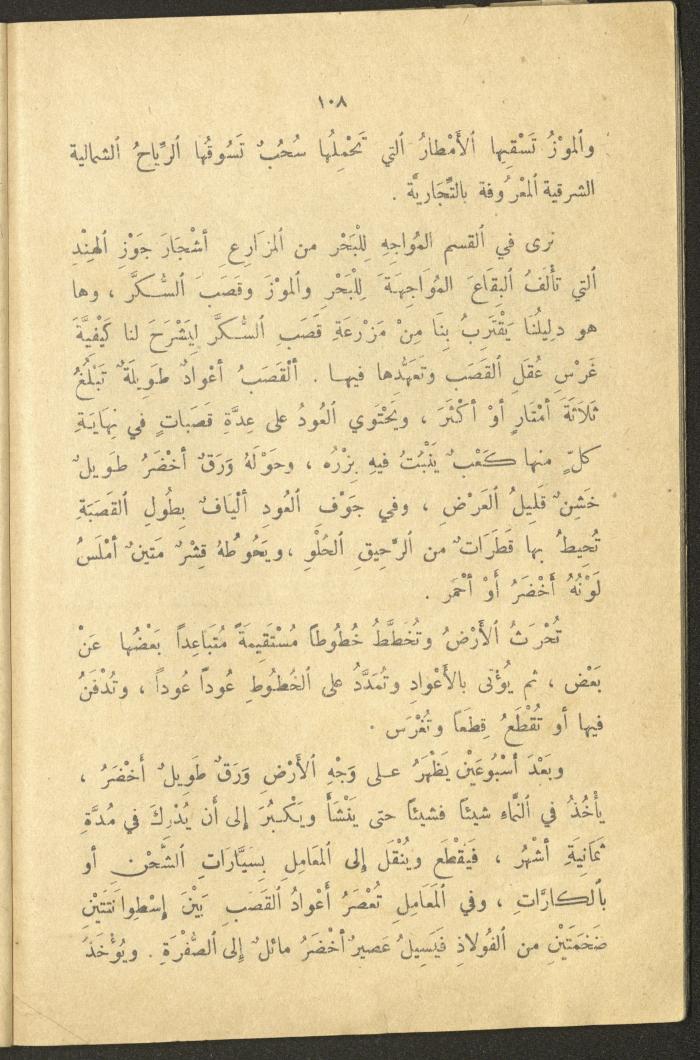 ١٠٨
وٱلموْزُ تَسْقِيها ٱلأَمْطارُ ٱلتي تَحْمِلُها سُحُبٌ تَسُوقُها ٱلرِّياحُ ٱلشمالية
الشرقية ٱلمعْرُوفة بالتِّجَارِيَّة .
نرى في ٱلقسم المُواجِهِ لِلْبَحْر من المزَارِعِ أشْجَارَ جَوْزِ ٱلهِنْدِ
ٱلتي تأْلَفُ ٱلبِقَاعَ المُوَاجِهَةَ لِلْبَحْرِ وٱلموْزَ وقصَبَ ٱلسُّكرَّ ، وها
هو دلِيلُنَا يَقْتَرِبُ بِنَا مِنْ مَزْرعَةِ قَصَبِ ٱلسُّكرَّ لِيَشْرَحَ لنا كَيْفِيَّةَ
غَرْسِ عُقَلِ ٱلقَصَب وتعَهُّدها فيهـا . أَلْقَصَبُ أعْوادٌ طَوِيلَةٌ تَبْلُغُ
ثلَاثَةَ أمْتارٍ أوْ أكْثَرَ ، ويَحْتَوي ٱلعُودُ على عِدَّةِ قَصَباتٍ في نِهايَةِ
كلِّ منها كَعْبٌ يَنْبُتُ فيهِ بِزْرُه ، وحَوْلَهُ وَرَقٌ أخْضَرُ طوِيلٌ
خَشِنٌ قَلِيلُ ٱلعَرْضِ ، وفي جَوْفِ ٱلعُودِ ألْيافٌ بِطُولِ ٱلقَصَبَةِ
تُحِيطُ بها قَطَرَاتٌ من ٱلرَّحِيقِ ٱلحُلْوِ ، ويَحُوطُهُ قِشْرٌ مَتينٌ أمْلَسُ
لَوْنُهُ أَخْضَرُ أَوْ أحْمَر .
تُحْرَثُ ٱلأَرْضُ وتُخَطَّطُ خُطُوطاً مُسْتَقِيمَةً مُتَباعِداً بَعْضُها عَنْ
بَعْض ، ثم يُؤْتى بالأَعْوادِ وتُمَدَّدُ على ٱلخُطُوطِ عُوداً عُوداً ، وتُدْفَنُ
فيها أو تُقْطَعُ قِطَعاً وتُغْرَس .
وبَعْدَ أسْبُوعَيْن يَظْهَرُ عـلى وَجْهِ ٱلأَرْضِ وَرَقٌ طَوِيلٌ أَخْضَرُ ،
يأْخُذُ في ٱلنَّماءِ شيئاً فشيئاً حتى يَنْشَأَ ويَكْبُرَ إلى أن يُدْرِكَ في مُدَّةِ
ثَمَانِيَةِ أشْهُر ، فَيُقْطَع ويُنْقَل إلى ٱلمَعَامِلِ بِسَيَّارَاتِ ٱلشَّحْنِ أو
بٱلكارَّاتِ ، وفي ٱلمَعَامِلِ تُعْصَرُ أَعْوادُ ٱلقَصَبِ بَيْنَ إسْطِوانَتَيْنِ
ضَخمَتَيْنِ من ٱلفُولاذِ فَيَسِيلُ عَصيرٌ أخْضَرُ مائلٌ إلى ٱلصُّفْرَةِ . ويُؤْخَذُ